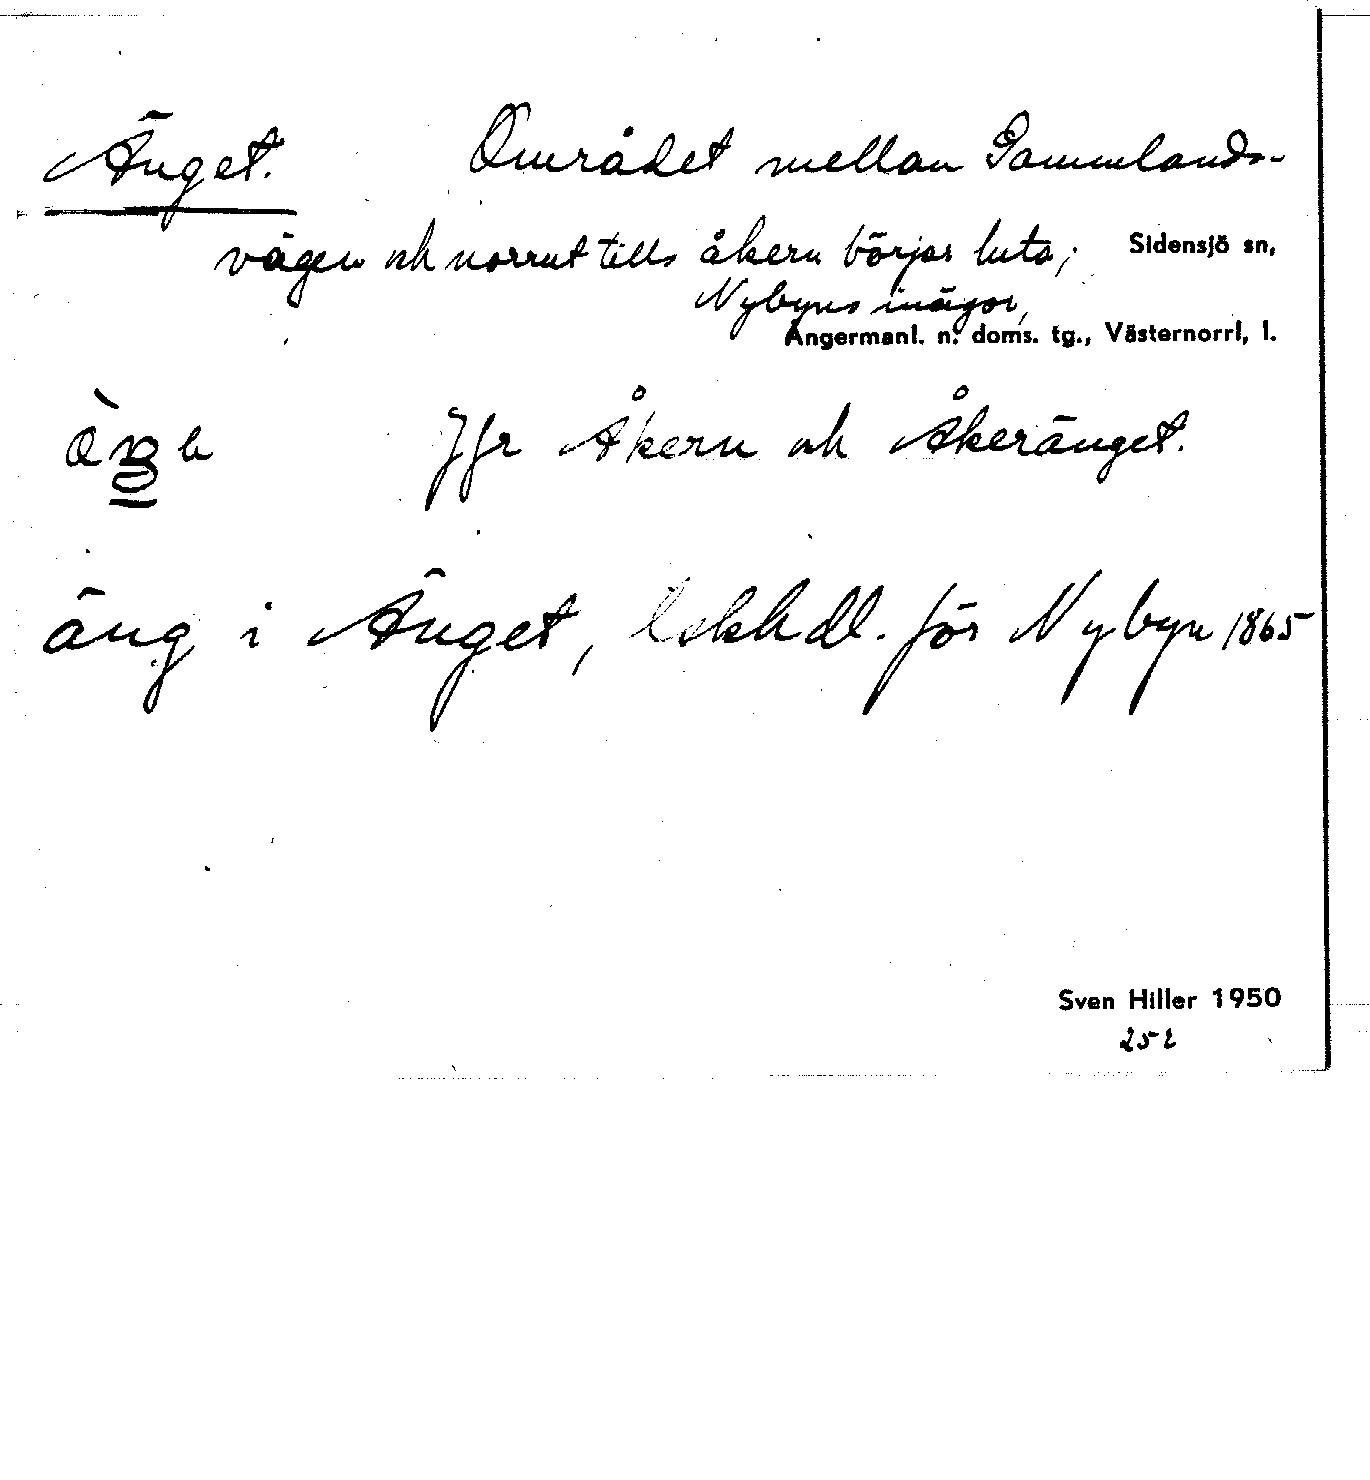 Änget. Området mellan Gammlands-
vägen och norrut tills åkern börjar luta; Sidensjö sn,
Nybyns inägor,
Ångermanl. n. doms. tg., Västernorrl. l.
Jfr Åkern och Åkeränget.
äng i Änget, lskhdl. för Nybyn 1865
Sven Hiller 1950
252